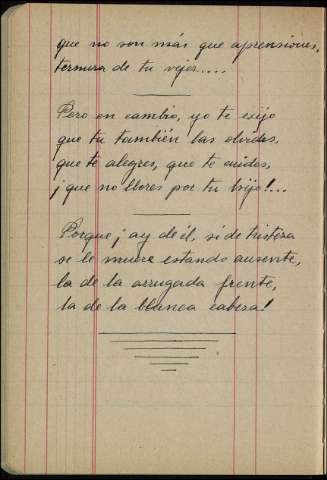 que no son más que aprensiones,
ternura de tu vejez.....
Pero en cambio, yo te exijo
que tu también las olvides,
que te alegres, que te cuides,
¡que no llores por tu hijo!...
Porque ¡ay de él, si de tristeza
se le muere estando ausente,
la de la arrugada frente,
la de la blanca cabeza!